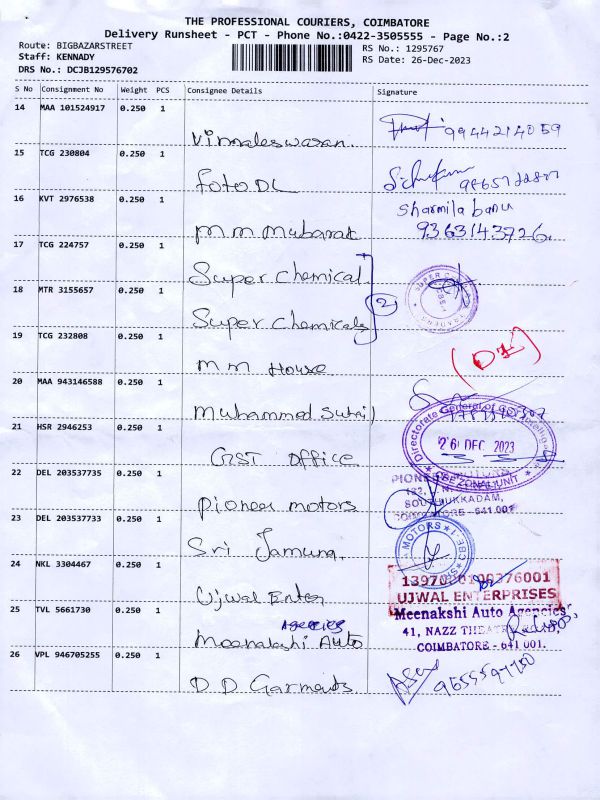 THE PROFESSIONAL COURIERS, COIMBATORE
Delivery Runsheet - PCT - Phone No.:0422-3505555 - Page No.:2
Route: BIGBAZARSTREET
Staff: KENNADY
DRS No.: DCJB129576702
RS No.: 1295767
RS Date: 26-Dec-2023
S No Consignment No Weight PCS Consignee Details Signature
14 MAA 101524917 0.250 1
Vimaleswaran. 9944214059
15 TCG 230804 0.250 1
Foto DL
16 KVT 2976538 0.250 1
Sharmila banu
M m Mubarak 9363143726.
17 TCG 224757 0.250 1
Super chemical
18 MTR 3155657 0.250 1
2
Super chemicals
19 TCG 232808 0.250 1
M m House
20 MAA 943146588 0.250 1
Muhammed Suhail
21 HSR 2946253 0.250 1
Directorate General of
26 DEC 2023
ZONAL UNIT
GST office
22 DEL 203537735 0.250 1
Pioneer motors
COIMBATORE - 641 001
23 DEL 203537733 0.250 1
MOTORS CBE-1
Sri Jamuna.
24 NKL 3304467 0.250 1
Ujwal Enter
UJWAL ENTERPRISES
25 TVL 5661730 0.250 1
Agencies
Meenakshi Auto
Meenakshi Auto Agencies
41, NAZZ THEATRE
COIMBATORE - 641 001.
26 VPL 946705255 0.250 1
D.D Garments